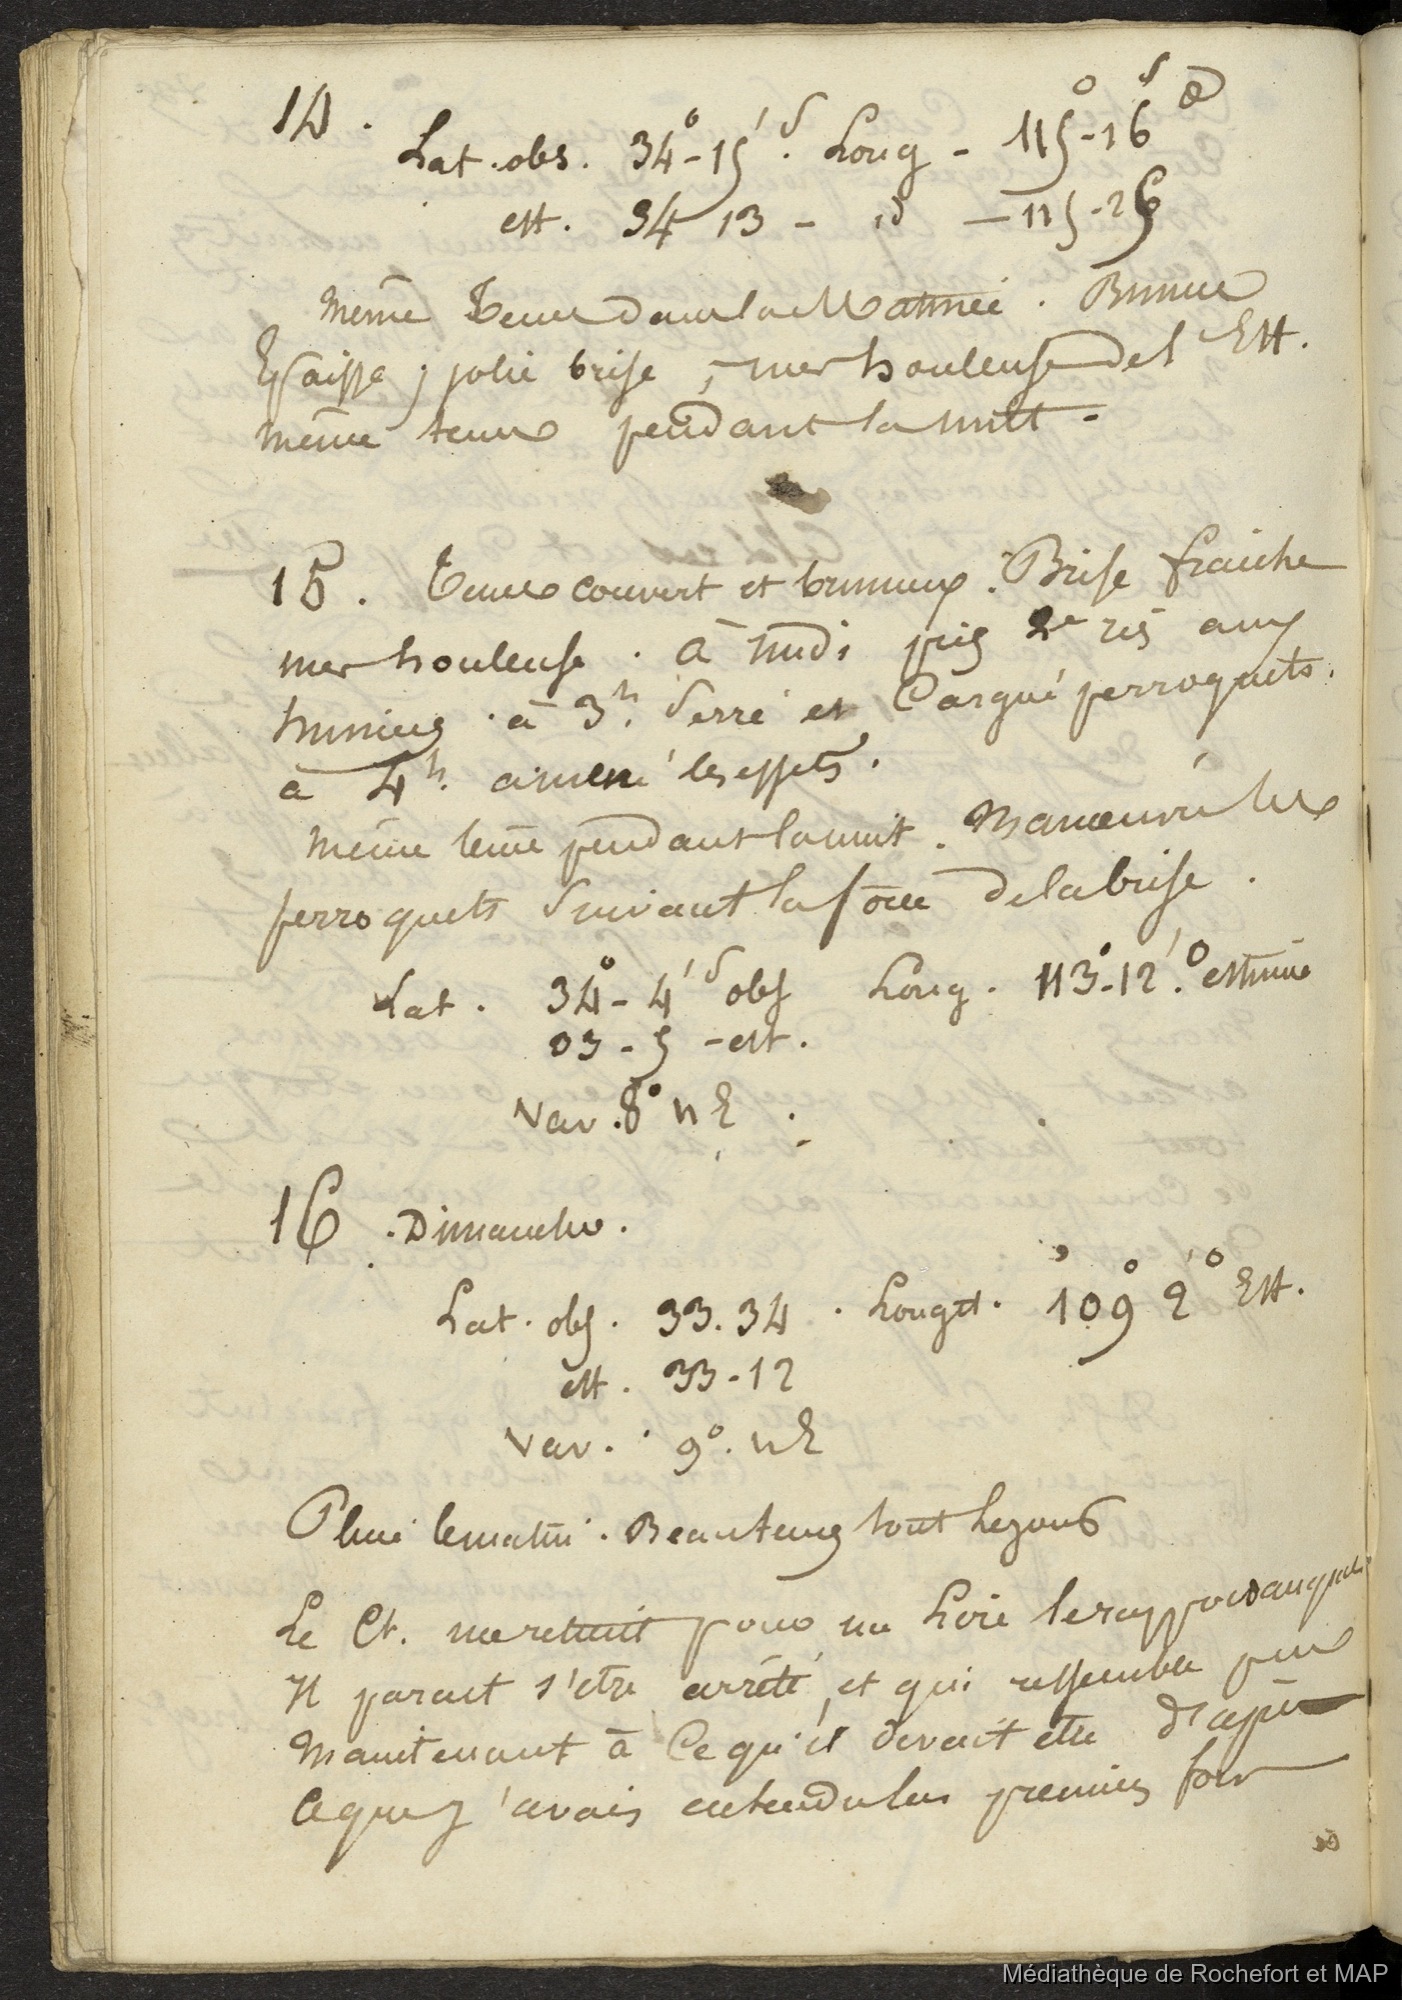 14.
Lat. obs. 34°-15' S. Long - 115°-16' O
est. 34 13 - id - 115-26
même tems dans la Matinée. Brume
Epaisse; jolie brise, mer houleuse del Est.
même tems pendant la nuit.
15. Tems couvert et brumeux. Brise fraiche
mer houleuse. à midi pris 2e ris aux
huniers. à 3h. Serré et Cargué perroquets.
à 4h. amené les effets.
même tems pendant la nuit. Manœuvré les
perroquets Suivant la force de la brise.
Lat. 34°-4' S obs Long. 113°-12'. O estimée
03-5 - est.
Var. 8° n E.
16. Dimanche.
Lat. obs. 33.34. Longit. 109° 2' O Est.
est. 33-12
Var. 9°. n E
Pluie le matin. Beau tems tout le jour
Le Ct. me retient pour lui lire le rapport auquel
Il parait s'etre arrété, et qui ressemble peu
Maintenant à Ce qu'il devait etre d'après
Ceque j'avais entendu les premiers fois